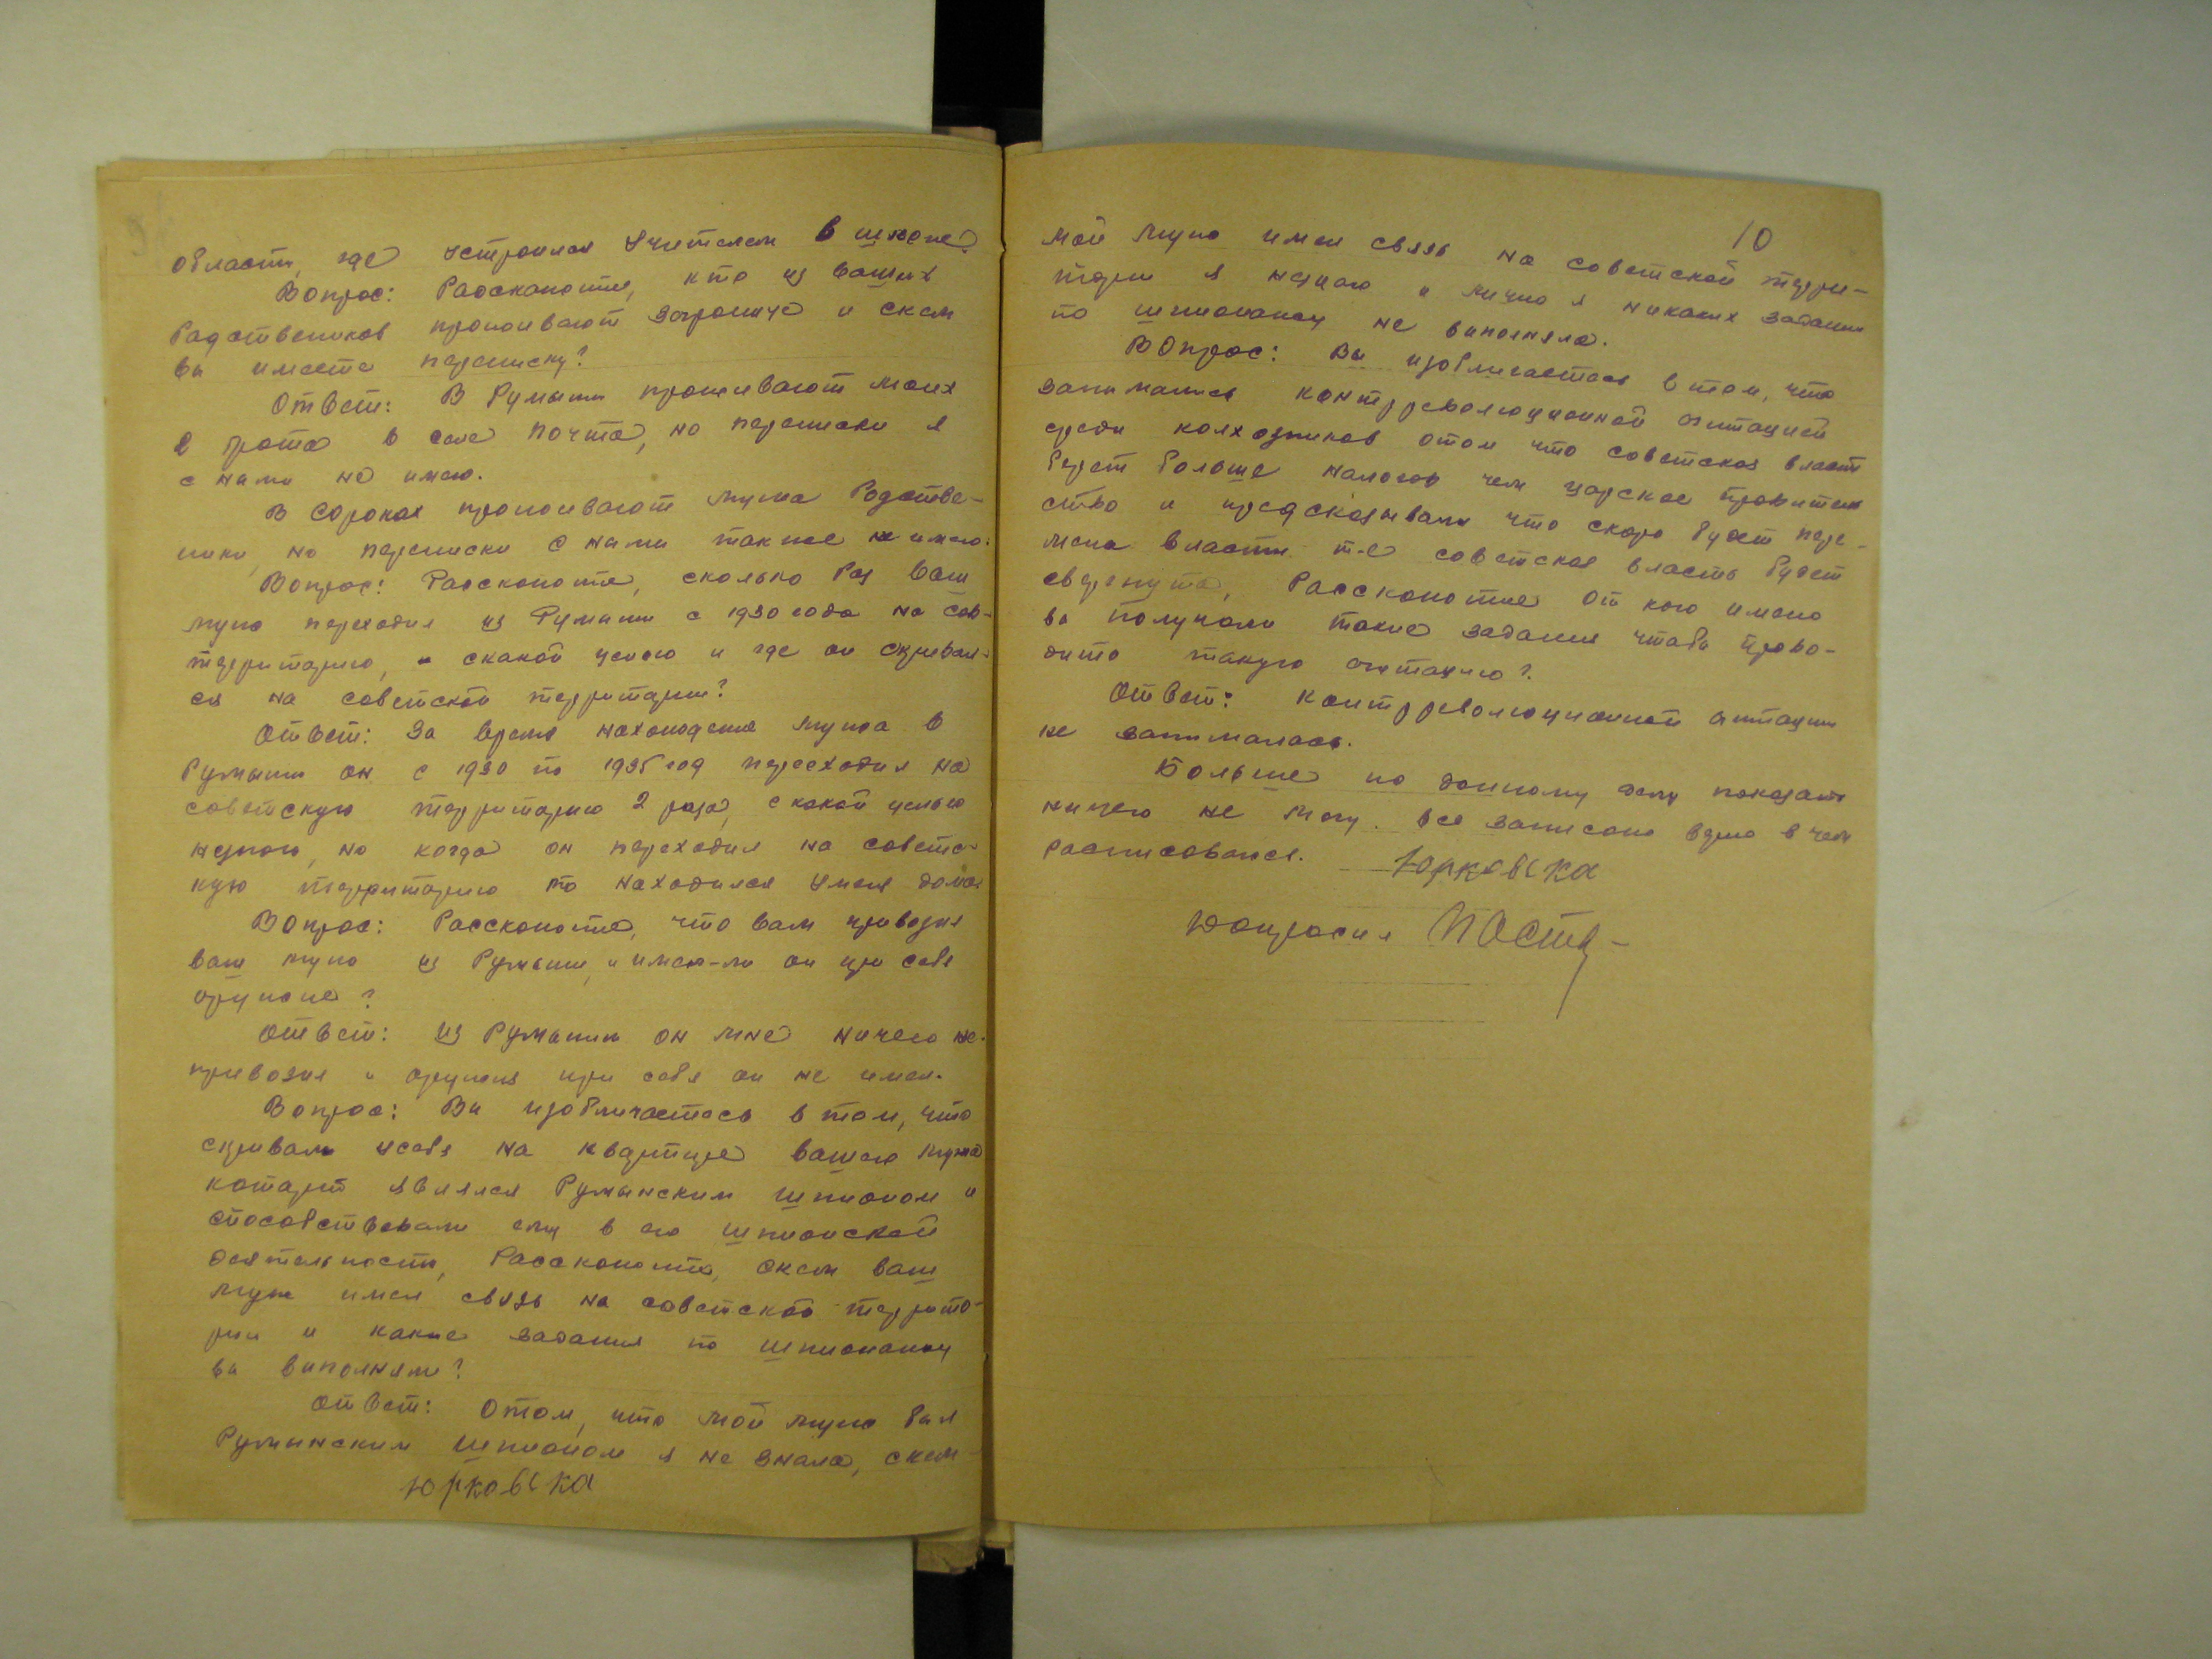 области, где устроился учителем в школе.
Вопрос: Расскажите, кто из ваших
Радствеников проживают заграницe и скем
вы имеете переписку?
Ответ: В Румынии проживают моих
2 брата в селе почта, но переписки я
с ними не имею.
В Сороках проживают мужа Родстве-
ники, но переписки с ними также не имею.
Вопрос: Расскажите, сколько Раз ваш
муж переходил из Румынии с 1930 года на сов-
территорию, с какой целью и где он скривал-
ся на советской территории?
Ответ: За время нахождения мужа в
Румынии он с 1930 по 1935 год переходил на
советскую территорию 2 раза, с какой целью
незнаю, но когда он переходил на советс-
кую территорию то находился уменя дома.
Вопрос: Расскажите, что вам привозил
ваш муж из Румынии, и имел-ли он при себе
оружие?
Ответ: Из Румынии он мне ничего не-
привозил и оружия при себя он не имел.
Вопрос: Ви изобличаетесь в том, что
скривали усебя на квартире вашего мужа
которий являлся Румынским шпионом и
способствовали ему в его шпионской
деятельности, Расскажите, скем ваш
муж имел связь на советской террито-
рии и какие задания по шпионажу
ви виполняли?
Ответ: Отом, что мой муж бил
Румынским шпионом я не знала, скем
Юрковска
10
мой муж имел связь на советской терри-
тории я незнаю и лично я никаких задании
по шпионажу не виполняла.
Вопрос: Ви изобличаетесь в том, что
занимались контрреволюционной агитацией
среди колхозников отом что советская власть
берет больше налогов чем царское правитель
ство и предсказывали что скоро будет пере-
мена власти т-е советская власть будет
свергнута, Расскажите от кого имено
ви получали такие задания чтоби прово-
дить такую агитацию?
Ответ: Контрреволюционной агитации
не занималась.
Больше по данному делу показать
ничего не могу. Все записано верно в чем
расписоваюсь. Юрковска
Допросил